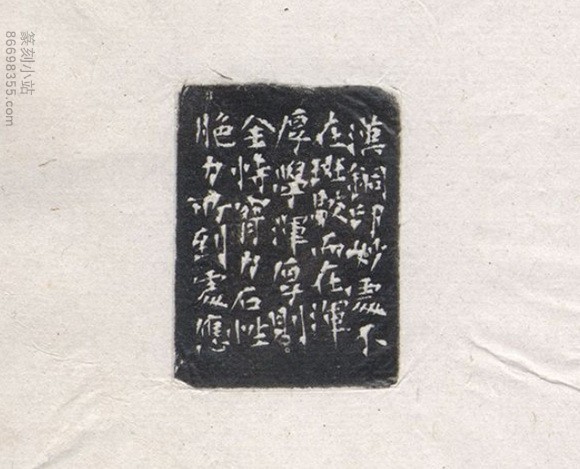 漢銅印妙處不
在斑駁而在渾
厚學渾厚則
全恃腕力石性
脆力所到處應
篆刻小站
86698355.com